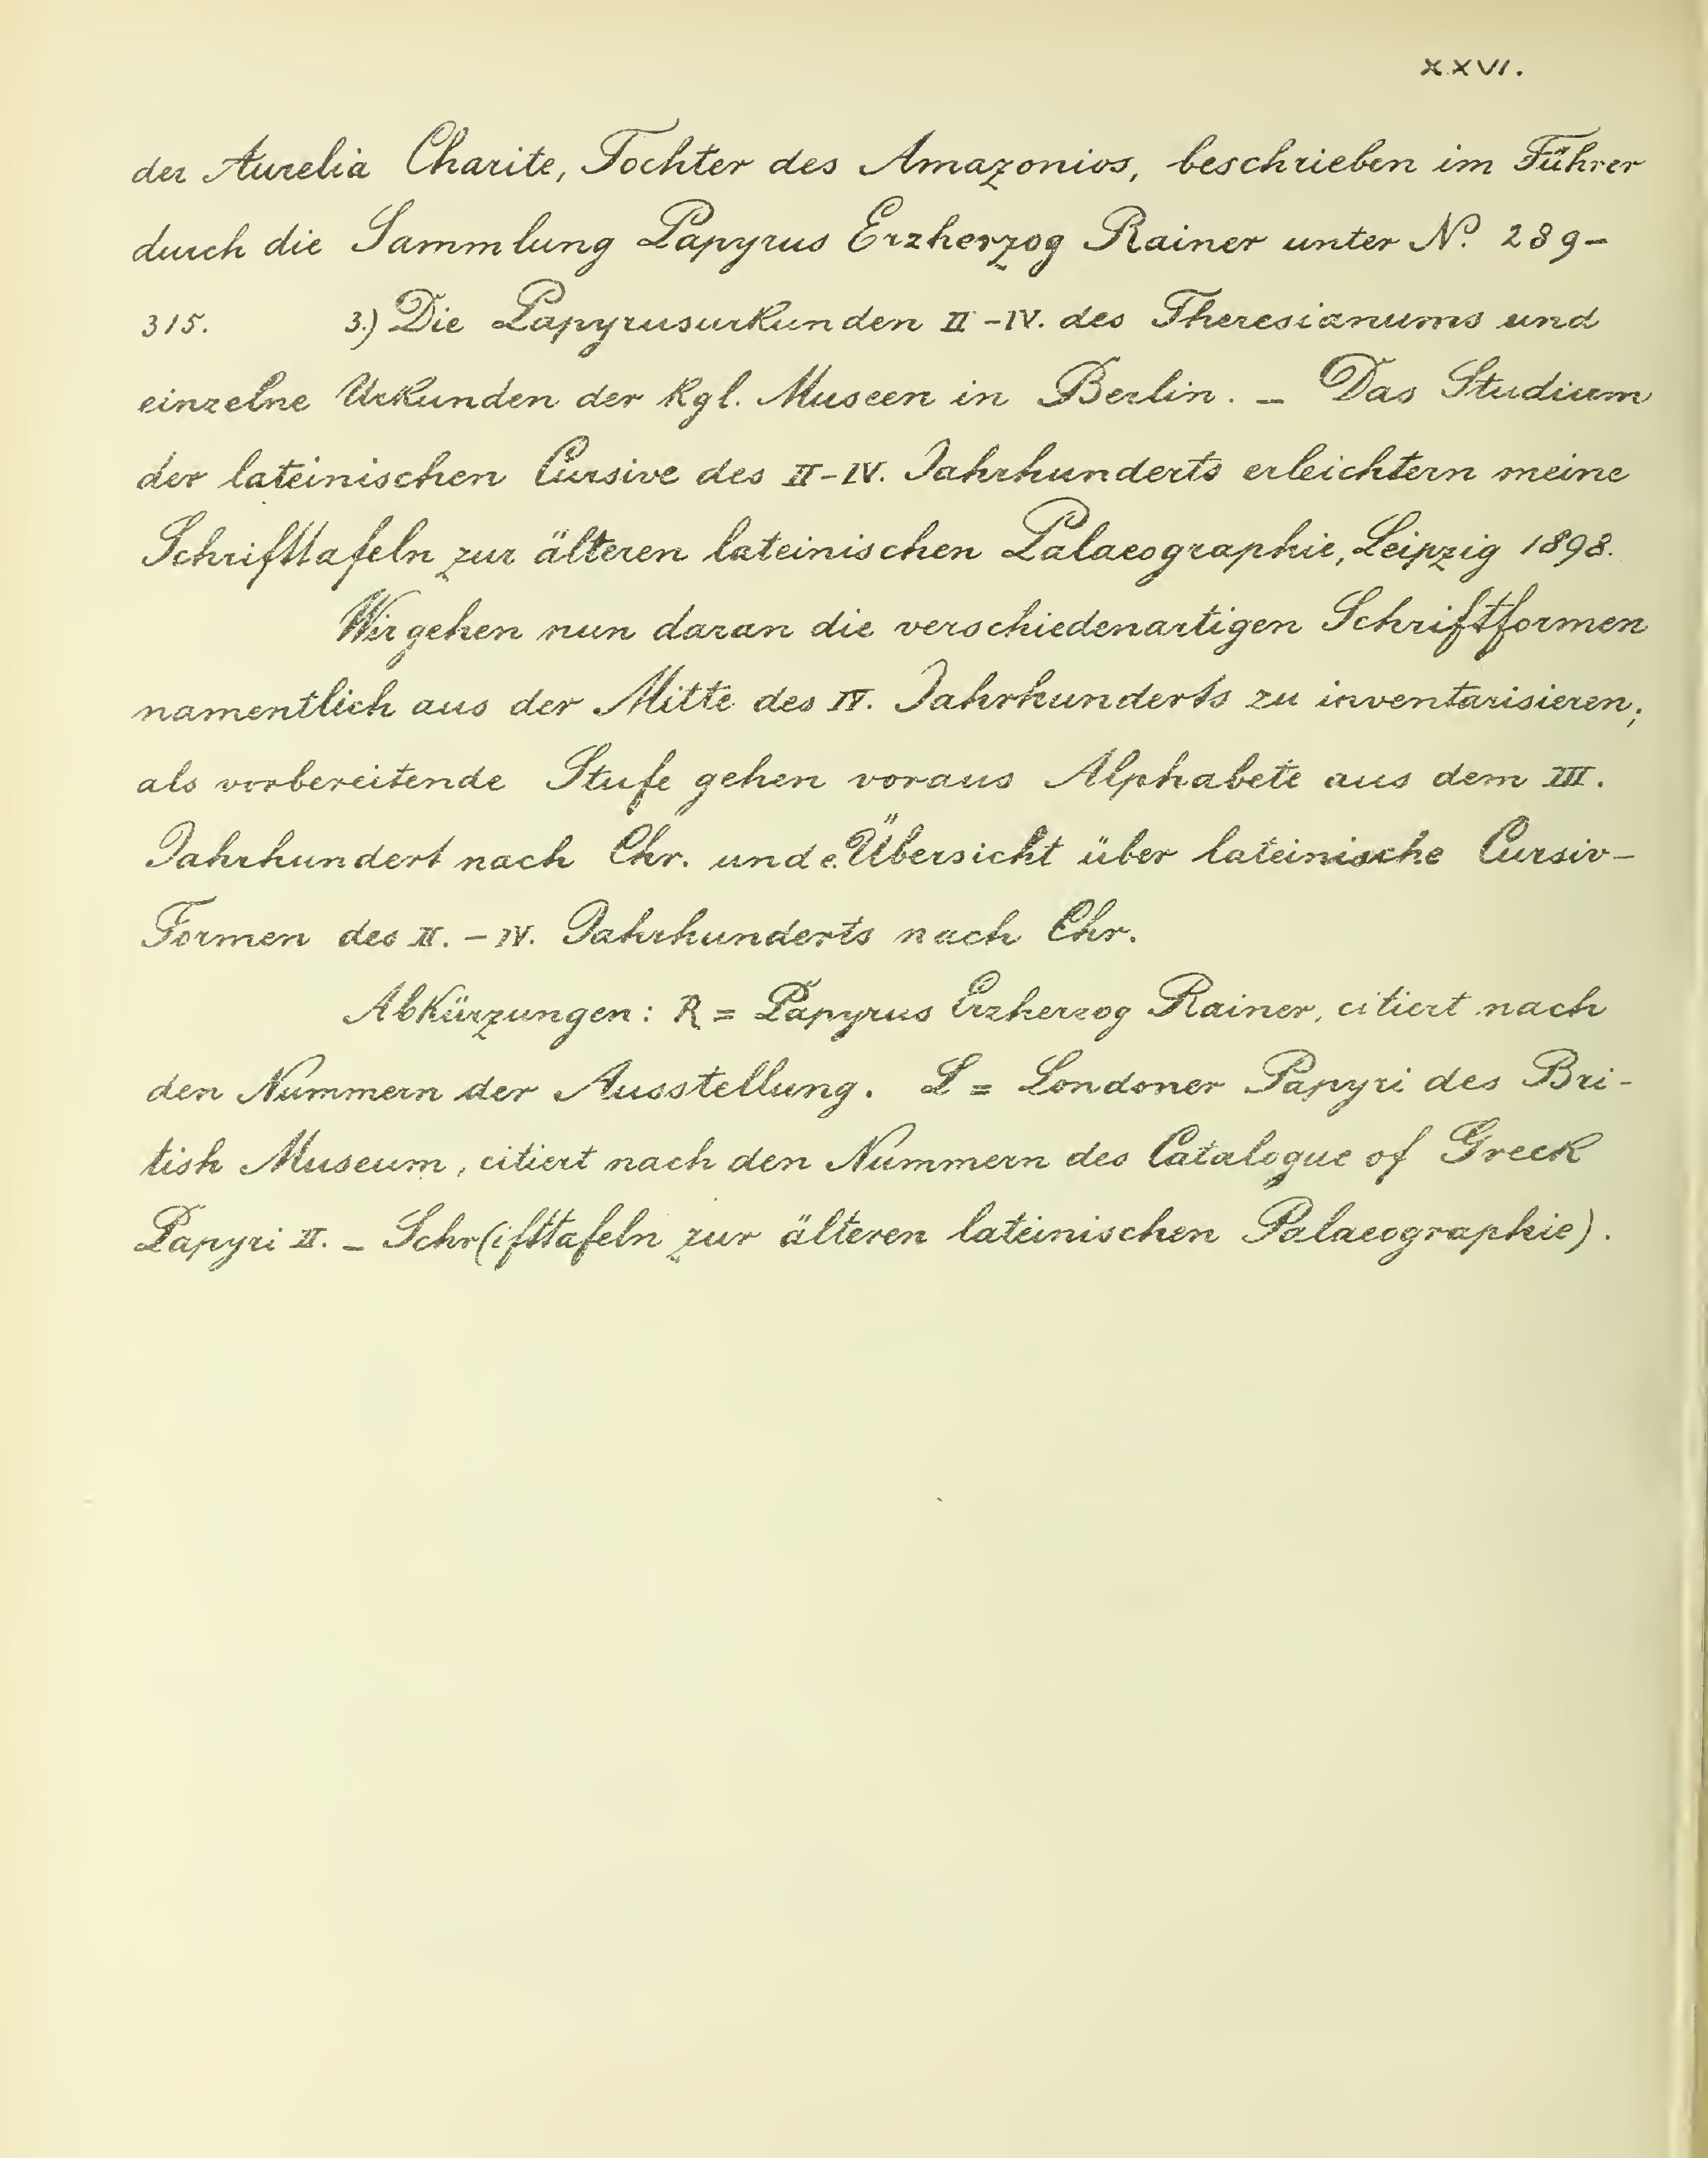 XXVI.
der Aurelia Charite, Tochter des Amazonios, beschrieben im Führer
durch die Sammlung Papyrus Erzherzog Rainer unter No. 289-
315. 3.) Die Papyrusurkunden II-IV. des Theresianums und
einzelne Urkunden der Kgl. Museen in Berlin. – Das Studium
der lateinischen Cursive des II-IV. Jahrhunderts erleichtern meine
Schrifttafeln zur älteren lateinischen Palaeographie, Leipzig 1898.
Wir gehen nun daran die verschiedenartigen Schriftformen
namentlich aus der Mitte des IV. Jahrhunderts zu inventarisieren;
als vorbereitende Stufe gehen voraus Alphabete aus dem III.
Jahrhundert nach Chr. und e. Übersicht über lateinische Cursiv-
Formen des II. – IV. Jahrhunderts nach Chr.
Abkürzungen: R = Papyrus Erzherzog Rainer, citiert nach
den Nummern der Ausstellung. L = Londoner Papyri des Bri-
tish Museum, citiert nach den Nummern des Catalogue of Greek
Papyri II. – Schr(ifttafeln zur älteren lateinischen Palaeographie).